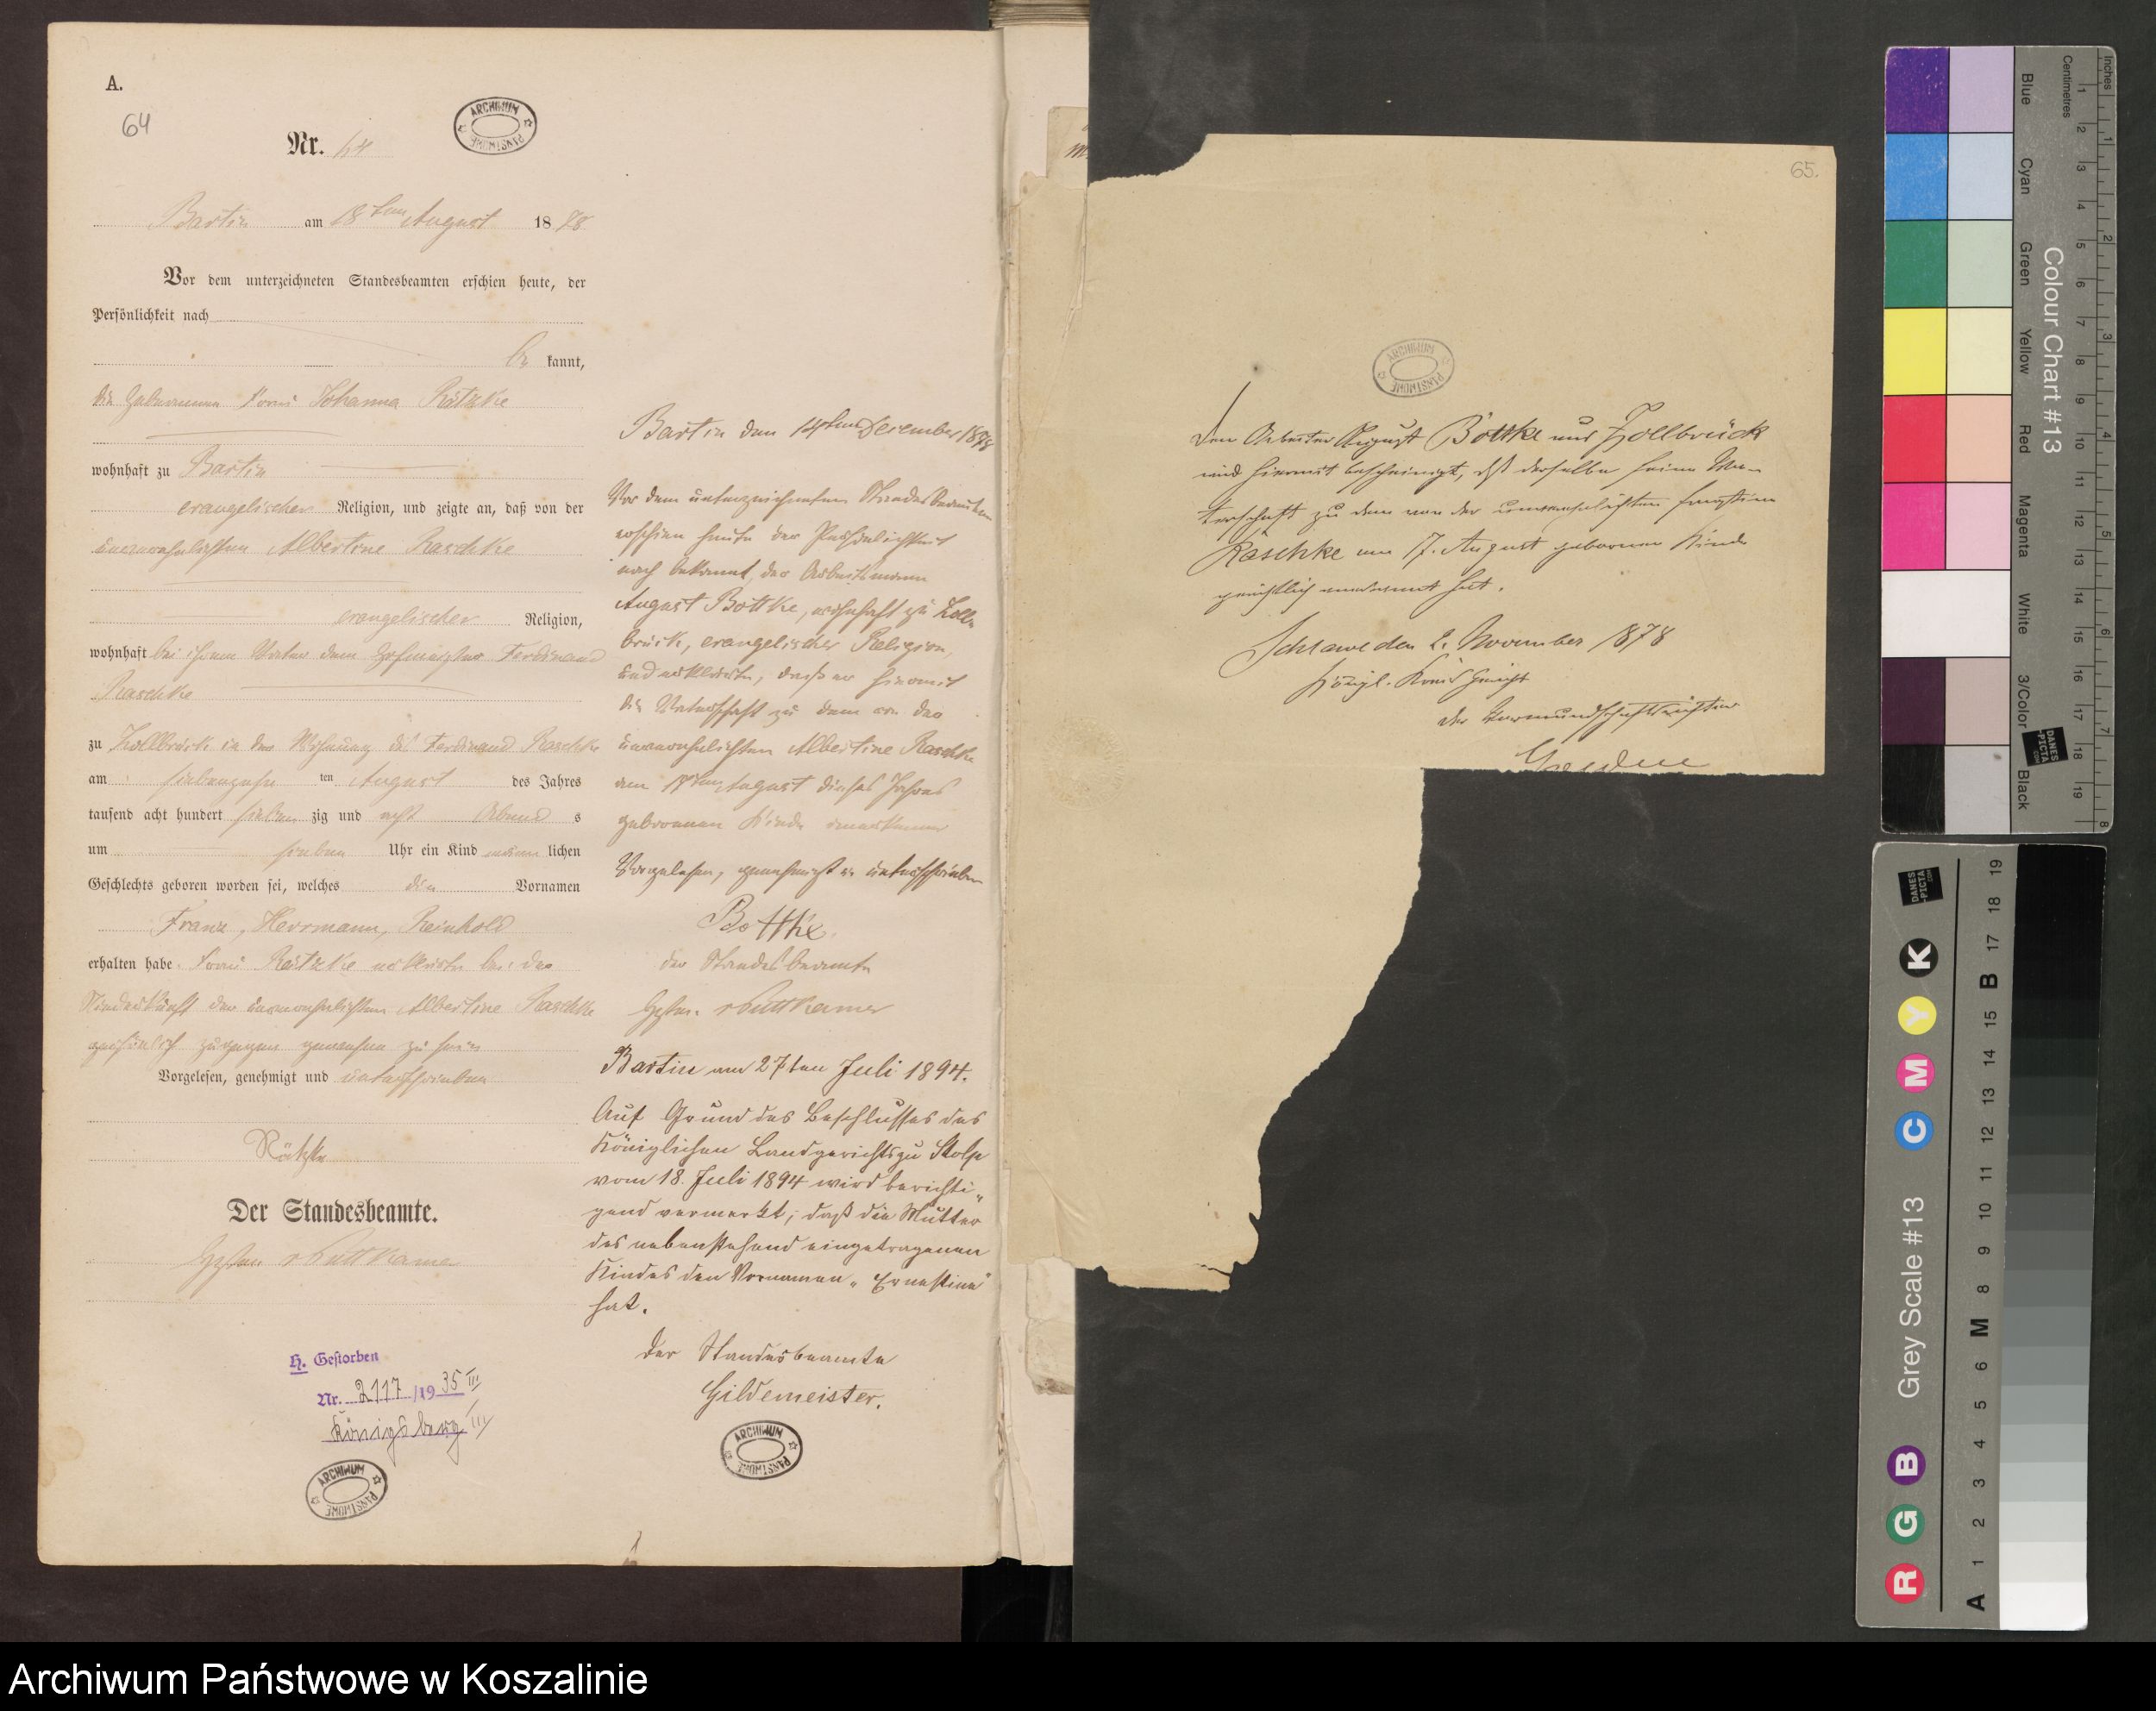 A.
64
Nr. 64
ARCHIWUM PAŃSTWOWE
Bartin am 18ten August 1878
Vor dem unterzeichneten Standesbeamten erschien heute, der
Persönlichkeit nach
be kannt,
die Hebeamme Frau Johanna Rätzke
wohnhaft zu Bartin
evangelischer Religion, und zeigte an, daß von der
unverehelichten Albertine Raschke
evangelischer Religion,
wohnhaft bei ihrem Vater dem Hofmeister Ferdinand
Raschke
zu Zollbrück in der Wohnung des Ferdinand Raschke
am siebenzehn ten August des Jahres
tausend acht hundert sieben zig und acht Abend s
um sieben Uhr ein Kind männ lichen
Geschlechts geboren worden sei, welches die Vornamen
Franz, Herrmann, Reinhold
erhalten habe. Frau Rätzke erklärte bei der
Niederkunft der unverehelichten Albertine Raschke
persönlich zugegen gewesen zu sein
Vorgelesen, genehmigt und unterschrieben
Rätzke
Der Standesbeamte.
v Puttkamer
H. Gestorben
Nr. 2117/1935 III
Königsberg III
ARCHIWUM PAŃSTWOWE
Bartin den 14ten December 1878
Vor dem unterzeichneten Standesbeamten
erschien heute der Persönlichkeit
nach bekannt, der Arbeitsmann
August Bottke, wohnhaft zu Zoll-
brück, evangelischer Religion,
und erklärte, daß er hiermit
die Vaterschaft zu dem von der
unverehelichten Albertine Raschke
am 17ten August dieses Jahres
geborenen Kinde anerkenne
Vorgelesen, genehmigt u. unterschrieben
Bottke.
der Standesbeamte
v Puttkamer
Bartin am 27ten Juli 1894.
Auf Grund des Beschlusses des
Königlichen Landgerichts zu Stolp
vom 18. Juli 1894 wird berichti-
gend vermerkt, daß die Mutter
des nebenstehend eingetragenen
Kindes den Vornamen „Ernestine"
hat.
Der Standesbeamte
Gildemeister.
ARCHIWUM PAŃSTWOWE
65.
ARCHIWUM PAŃSTWOWE
Dem Arbeiter August Böttke aus Zollbrück
wird hiermit bescheinigt, daß derselbe seine Va-
terschaft zu dem von der unverehelichten Ernestine
Raschke am 17. August geborenen Kinde
gerichtlich anerkannt hat.
Schlawe den 2. November 1878
Königl. Kreis Gericht
Der Vormundschaftsrichter
Inches
Centimetres
Colour Chart #13
Blue
Cyan
Green
Yellow
Red
Magenta
White
3/Color
Black
DANES-PICTA.COM
Grey Scale #13
R G B C M Y K
A 1 2 3 4 5 6 M 8 9 10 11 12 13 14 15 B 17 18 19
Archiwum Państwowe w Koszalinie